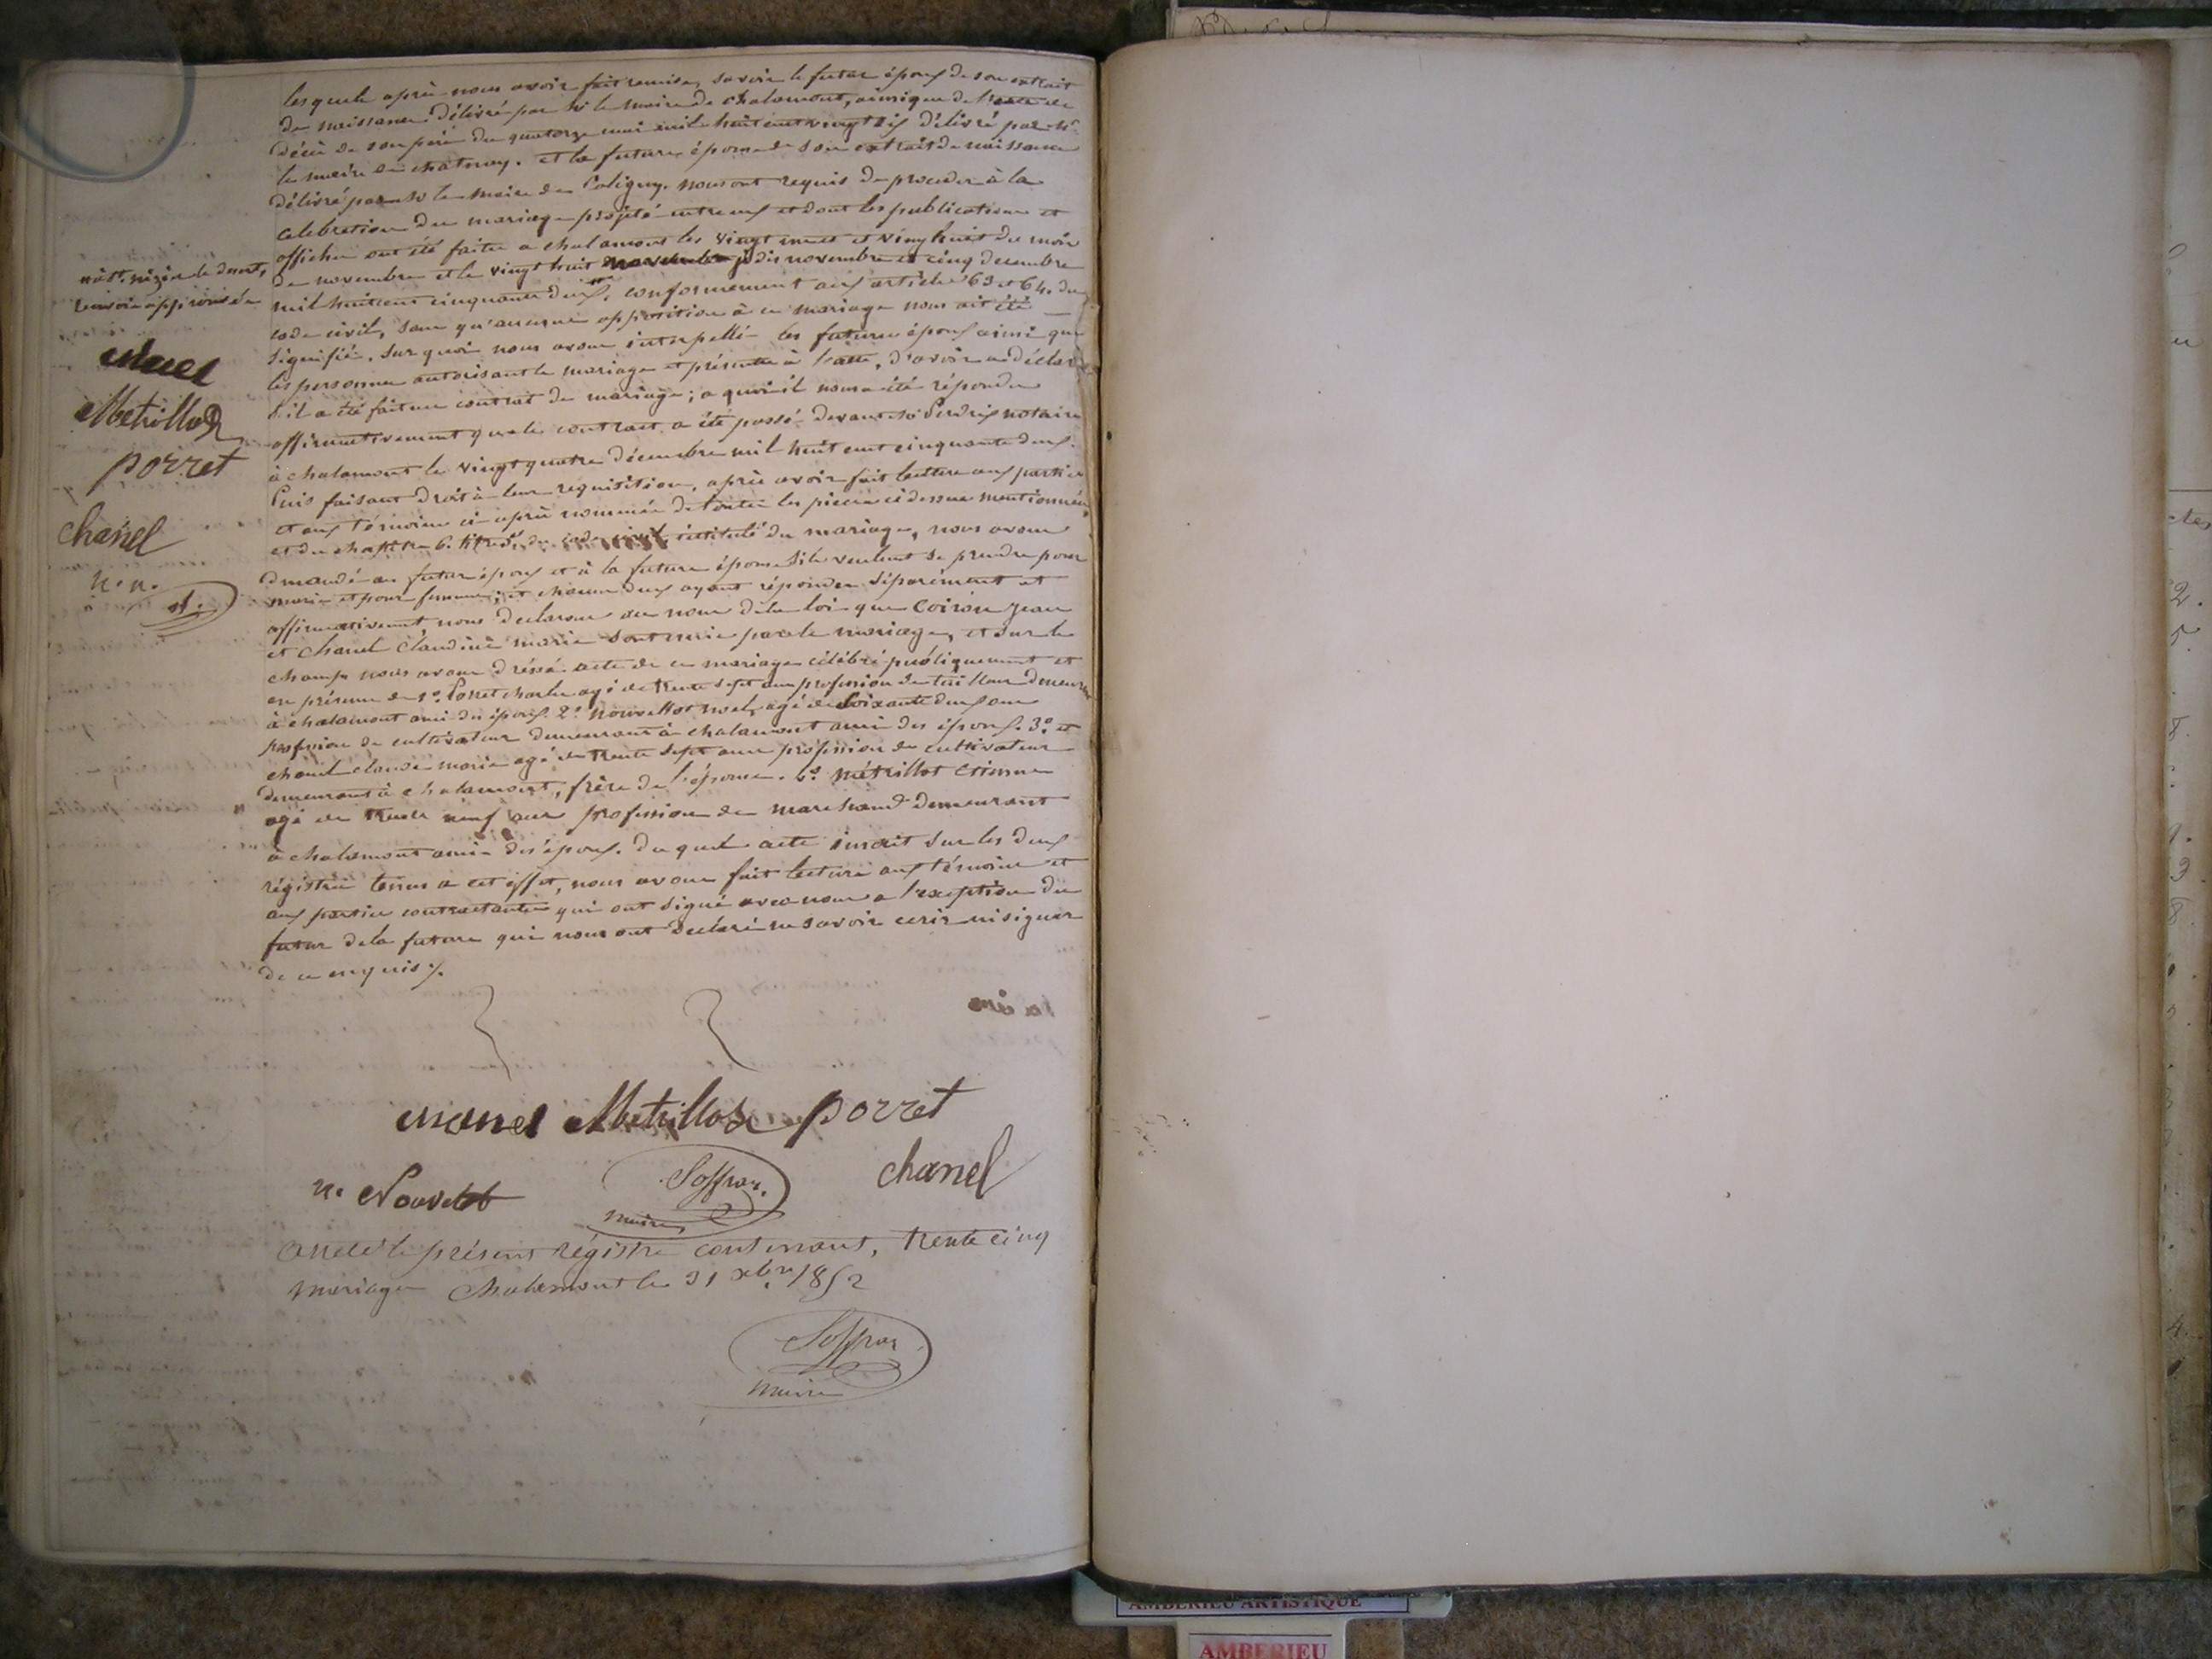 lesquels après nous avoir fait remise, savoir le futur époux de son extrait
de naissance délivré par Mr le maire de chalamont, ainsique de l'acte de
décès de son père du quatorze mai mil huit cent vingt six délivré par Mr
le maire de chatnay. et la future épouse de son extrait de naissance
délivré par Mr le maire de Coligny. nous ont requis de procéder à la
celebration du mariage projeté entre eux et dont les publications et
affiches ont été faites a chalamont les vingt un et vingt huit du mois
de novembre et le vingt huit novembre et cinq decembre
mil huit cent cinquante deux, conformement aux articles 63 et 64. du
code civil, sans qu'aucune opposition à ce mariage nous ait été
signifiée. sur quoi nous avons interpellé les futurs époux ainsi que
les personnes autorisant le mariage et présente à l'acte, d'avoir a déclarer
s'il a été fait un contrat de mariage; a quoi il nous a été répondu
affirmativement que le contrat a été passé devant Me Perdrix notaire
à chalamont le vingt quatre décembre mil huit cent cinquante deux.
Puis faisant droit à leur requisition, après avoir fait lecture aux parties
et aux témoins ci-après nommés de toutes les pieces ci dessus mentionnées
et du chapitre 6. titre 5. du code civil intitulé du mariage, nous avons
demandé au futur époux et à la future épouse s'ils veulent se prendre pour
mari et pour femme; et chacun deux ayant répondu séparément et
affirmativement, nous declarons au nom de la loi que Coiron jean
et chanel claudine marie sont unis par le mariage, et sur le
champ nous avons dréssé acte de ce mariage célébré publiquement et
en présence de 1º. Porret charles agé de trente sept ans profession de tailleur demeurant
à chalamont ami des époux. 2º. nouvellot noel, agé de soixante deux ans
profession de cultivateur demeurant à chalamont ami des époux. 3º. et
chanel claude marie agé de trente sept ans profession de cultivateur
demeurant à chalamont, frère de l'épouse. 4º métrillot etienne
agé de trente neuf ans profession de marchand demeurant
à chalamont ami des époux. du quel acte inscrit sur les deux
régistres tenus a cet effet, nous avons fait lecture aux témoins et
aux parties contractantes qui ont signé avec nous a l'exception du
futur de la future qui nous ont declaré ne savoir ecrir ni signer
de ce enquis ./.
renvoi approuvé
Metrillod
porret
chanel
n. n.
chanel Metrillod porret
n. Nouvelot
chanel
maire
arreté le présent régistre contenant, trente cinq
mariages Chalamont le 31 xbre 1852
maire
AMBERIEU ARTISTIQUE
AMBERIEU